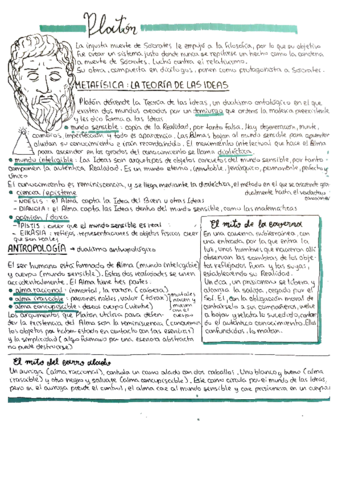 Platón
La injusta muerte de Sócrates le empujó a la filosofía, por lo que su objetivo
fue crear un sistema justo donde nunca se repitiese un hecho como la condena
a muerte de Sócrates. Luchó contra el relativismo.
Su obra, compuesta en diálogos, ponen como protagonista a Sócrates.
METAFÍSICA: LA TEORÍA DE LAS IDEAS
Platón defiende la Teoría de las Ideas, un dualismo ontológico en el que
existen dos mundos creados por un demiurgo que ordena la materia preexistente
y les dio forma a las Ideas
mundo sensible: copia de la Realidad, por tanto falso. Hay degeneración, muerte,
cambios, imperfección y todo es apariencia. Las Almas bajan al mundo sensible para
olvidan su conocimiento e irán recordándolo. El movimiento intelectual que hace el Alma
para ascender en los grados del conocimiento se llama dialéctica.
mundo inteligible: Las Ideas son arquetipos de objetos concretos del mundo sensible, por tanto
componen la auténtica Realidad. Es un mundo eterno, inmutable, jerárquico, permanente, perfecto y
único
El conocimiento es reminiscencia, y se llega mediante la dialéctica, el método en el que se asciende
ciencia / episteme
NOESIS: el Alma capta la Idea del Bien u otras Ideas
DIANOIA: el Alma capta las Ideas dentro del mundo sensible, como las matemáticas
opinión / doxa
PISTIS: creer que el mundo sensible es real
EIKASIA: reflejos, representaciones de objetos físicos creer
que son reales
ANTROPOLOGÍA → dualismo antropológico
El ser humano está formado de Alma (mundo inteligible)
y cuerpo (mundo sensible). Estas dos realidades se unen
accidentalmente. El Alma tiene tres partes:
alma racional: inmortal, la razón (cabeza)
alma irascible: pasiones nobles, valor (tórax)
alma concupiscible: deseos cuerpo (vientre)
mortales
nacen y
mueren
con el
cuerpo
Los argumentos que Platón utiliza para defen-
der la existencia del Alma son la reminiscencia (conocemos
los objetos por haber estado en contacto con las esencias)
y la simplicidad (algo formado por una esencia abstracta
no puede destruirse)
El mito de la caverna
En una caverna subterránea, con
una entrada por la que entra la
luz, unos hombres que nacieron allí
observan las sombras de los obje-
tos reflejados fuera y las suyas,
estableciendo su Realidad.
Un día, un prisionero se libera y
afronta la salida, cegado por el
Sol. Él, con la obligación moral de
a bajar y relata lo sucedido, contar
do el auténtico conocimiento. Ellos
confundidos, lo matan.
El mito del carro alado
Un auriga (alma racional), conduce un carro alado con dos caballos. Uno blanco y bueno (alma
irascible) y otro negro y salvaje (alma concupiscible). Este carro circula por el mundo de las Ideas,
pero si el auriga pierde el control, el alma cae al mundo sensible y cae prisionera en un cuerpo